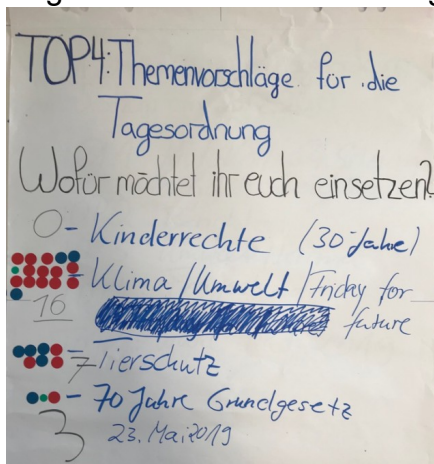 TOP4: Themenvorschläge für die
Tagesordnung
Wofür möchtet ihr euch einsetzen?
0 - Kinderrechte (30 Jahre)
- Klima / Umwelt / Friday for
16 future
7 - Tierschutz
- 70 Jahre Grundgesetz
3 23. Mai 2019